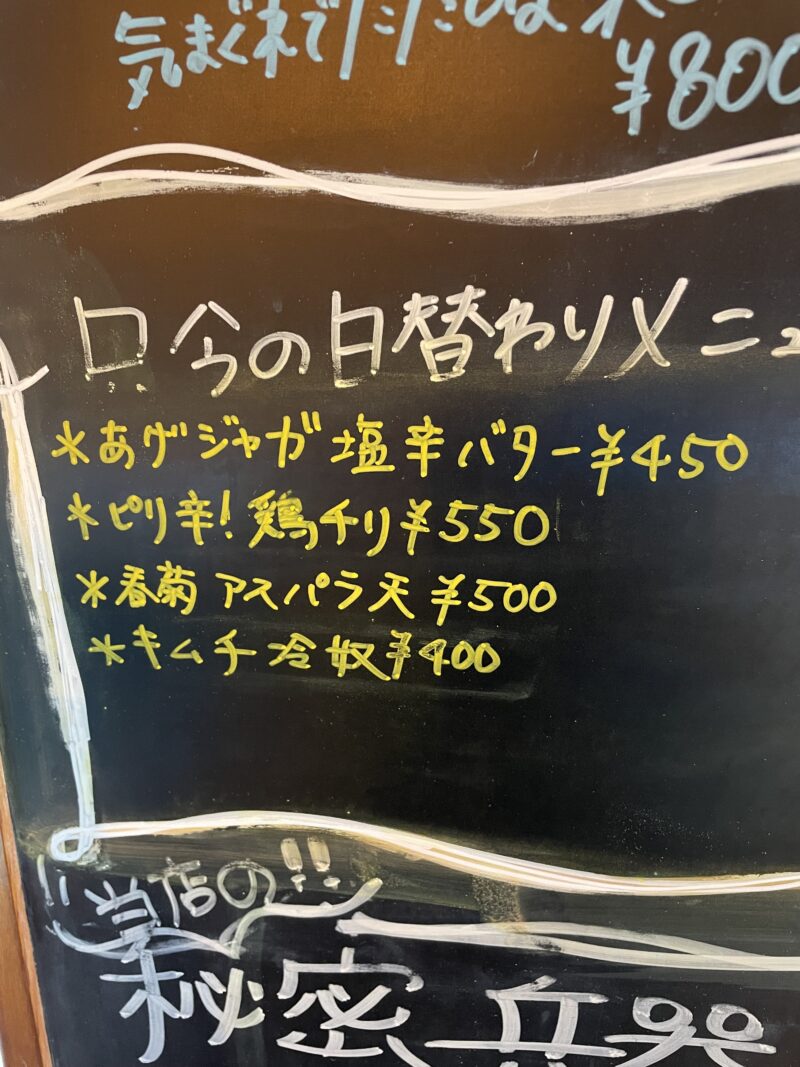 気まぐれで
¥800
只今の日替わりメニュ
*あげジャガ 塩辛バター¥450
*ピリ辛!鶏チリ¥550
*春菊アスパラ天¥500
*キムチ冷奴¥400
当店の!!
秘密兵器